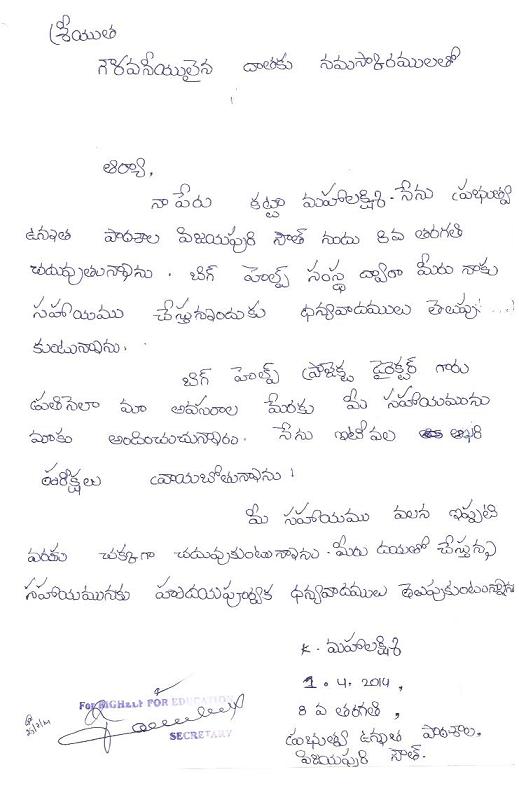 శ్రీయుత
గౌరవనీయులైన దాతకు నమస్కారములతో
ఆర్యా,
నా పేరు కట్టా మహాలక్ష్మి. నేను ప్రభుత్వ
ఉన్నత పాఠశాల విజయపురి సౌత్ నందు 8వ తరగతి
చదువుతున్నాను. బిగ్ హెల్ప్ సంస్థ ద్వారా మీరు నాకు
సహాయము చేస్తున్నందుకు ధన్యవాదములు తెలుపు...
కుంటున్నాను.
బిగ్ హెల్ప్ ప్రాజెక్టు డైరెక్టర్ గారు
ప్రతినెలా మా అవసరాల మేరకు మీ సహాయమును
మాకు అందించుచున్నారు. నేను ఇటీవల ఆఖరి
పరీక్షలు వ్రాయబోతున్నాను.
మీ సహాయము వలన ఇప్పటి
వరకు చక్కగా చదువుకుంటున్నాను. మీరు దయతో చేస్తున్న
సహాయమునకు హృదయపూర్వక ధన్యవాదములు తెలుపుకుంటున్నాను
K. మహాలక్ష్మి
1.4.2014,
8 వ తరగతి,
ప్రభుత్వ ఉన్నత పాఠశాల,
విజయపురి సౌత్.
For BIGHELP FOR EDUCATION
SECRETARY